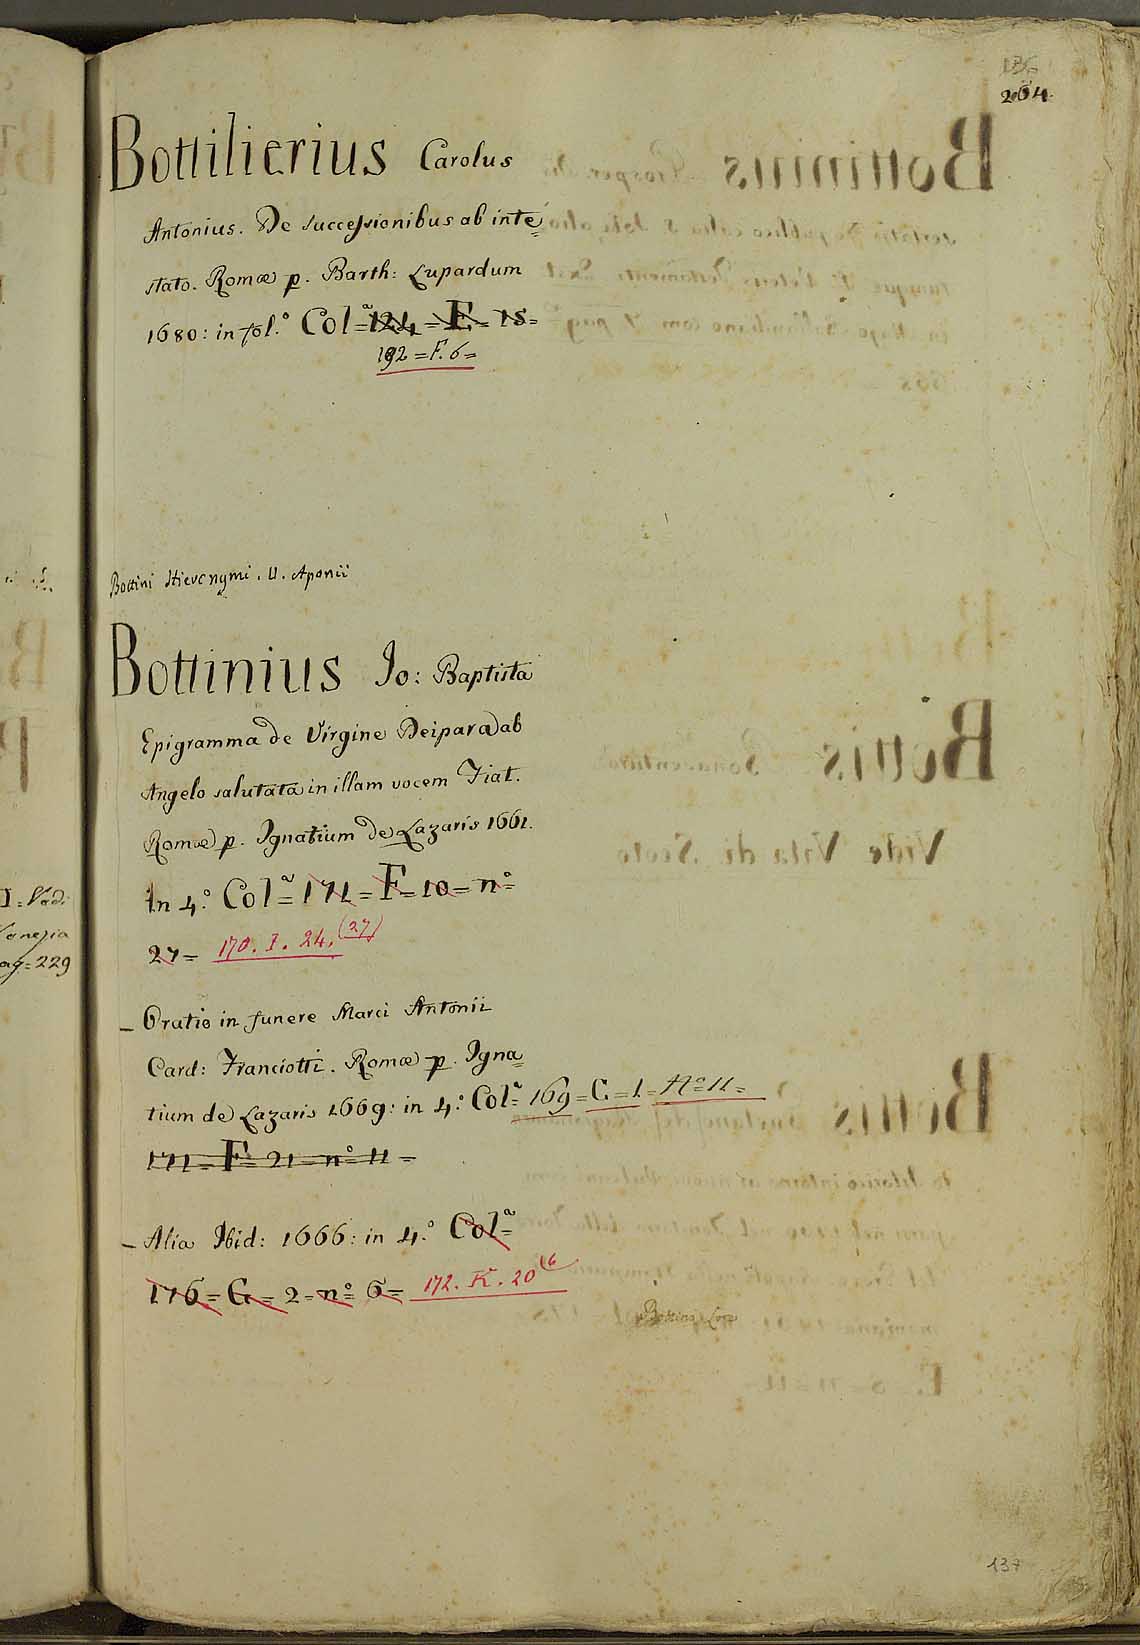 204.
Bottilierius Carolus
Antonius. De successionibus ab inte=
stato. Romæ p. Barth: Lupardum
1680: in fol.º Col=ª 124=E=15=
192=F.6=
Bottini Hieronymi. U. Aponii
Bottinius Jo: Baptista
Epigramma de Virgine Deipara ab
Angelo salutata in illam vocem Fiat.
Romæ p. Ignatium de Lazaris 1661.
In 4.º Col=ª 171=F=10=nº
27= 170. I. 24. (27)
– Oratio in funere Marci Antonii
Card: Franciotti. Romæ p. Igna=
tium de Lazaris 1669: in 4.º Col=ª 169=G=1=Nº 11=
171=F=21=nº 11=
– Alia Ibid: 1666: in 4.º Col=ª
176=G=2=nº 6= 172. K. 20 (6
137
I=Vadi
Venezia
ag=229